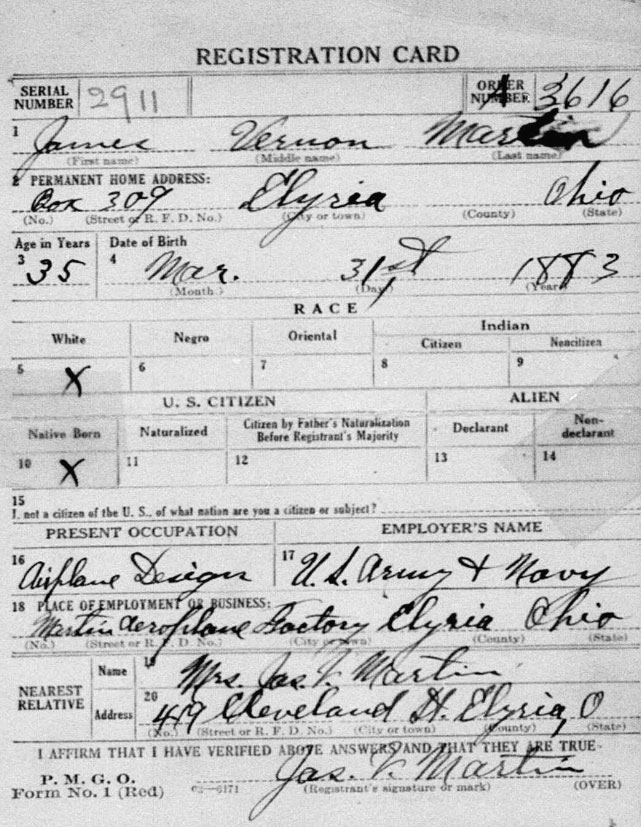 REGISTRATION CARD
SERIAL NUMBER 2911 ORDER NUMBER A 3616
1 James Vernon Martin
(First name) (Middle name) (Last name)
2 PERMANENT HOME ADDRESS:
Box 309 Elyria Ohio
(No.) (Street or R. F. D. No.) (City or town) (County) (State)
Age in Years Date of Birth
3 35 4 Mar. 31st 1883
(Month.) (Day.) (Year.)
RACE
White Negro Oriental Indian
Citizen Noncitizen
5 X 6 7 8 9
U. S. CITIZEN ALIEN
Native Born Naturalized Citizen by Father's Naturalization Before Registrant's Majority Declarant Non-declarant
10 X 11 12 13 14
15
I. not a citizen of the U. S., of what nation are you a citizen or subject?
PRESENT OCCUPATION EMPLOYER'S NAME
16 Airplane Design 17 U.S. Army & Navy
18 PLACE OF EMPLOYMENT OR BUSINESS:
Martin Aeroplane Factory Elyria Ohio
(No.) (Street or R. F. D. No.) (City or town) (County) (State)
NEAREST RELATIVE Name 19 Mrs. Jas. V. Martin
Address 20 419 Cleveland St. Elyria, O
(No.) (Street or R. F. D. No.) (City or town) (County) (State)
I AFFIRM THAT I HAVE VERIFIED ABOVE ANSWERS AND THAT THEY ARE TRUE
P. M. G. O. Jas. V. Martin
Form No. 1 (Red) 03—6171 (Registrant's signature or mark) (OVER)